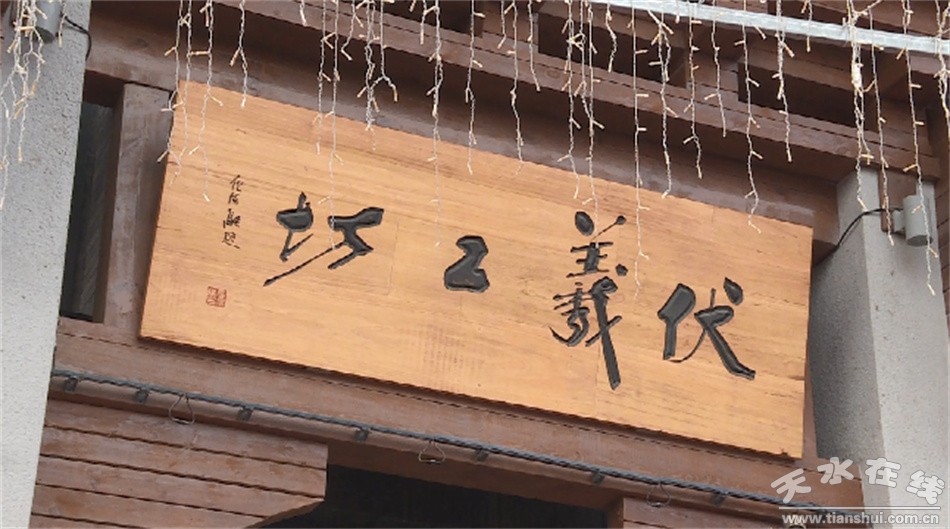 伏羲工坊
天水在线
www.tianshui.com.cn